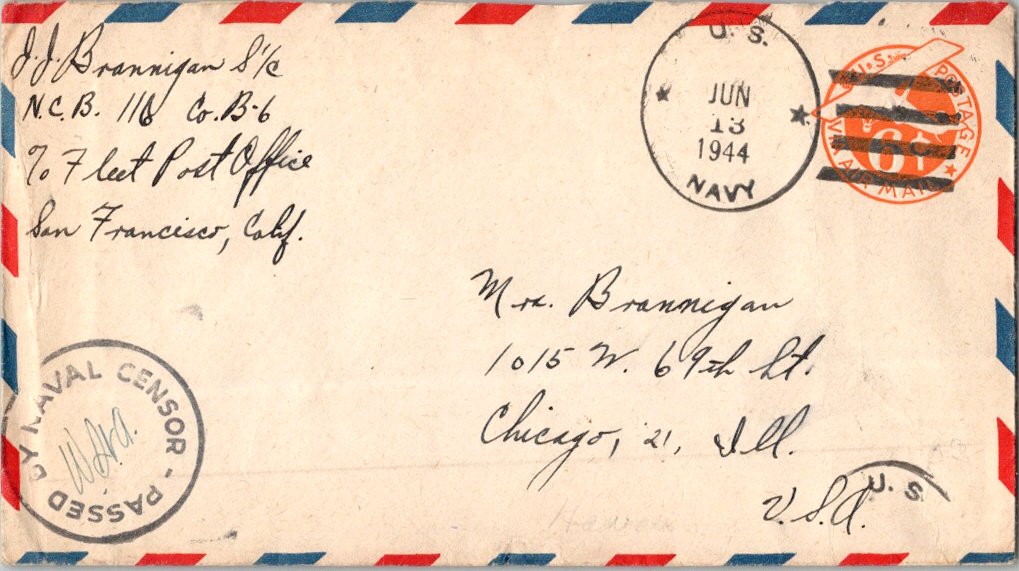 J.J. Brannigan S1/c
N.C.B. 116 Co. B-6
℅ Fleet Post Office
San Francisco, Calif.
U. S.
JUN
13
1944
NAVY
U.S. POSTAGE
6¢
VIA AIR MAIL
Mrs. Brannigan
1015 W. 69th St.
Chicago, 21, Ill.
U.S.A.
PASSED BY NAVAL CENSOR
U. S.